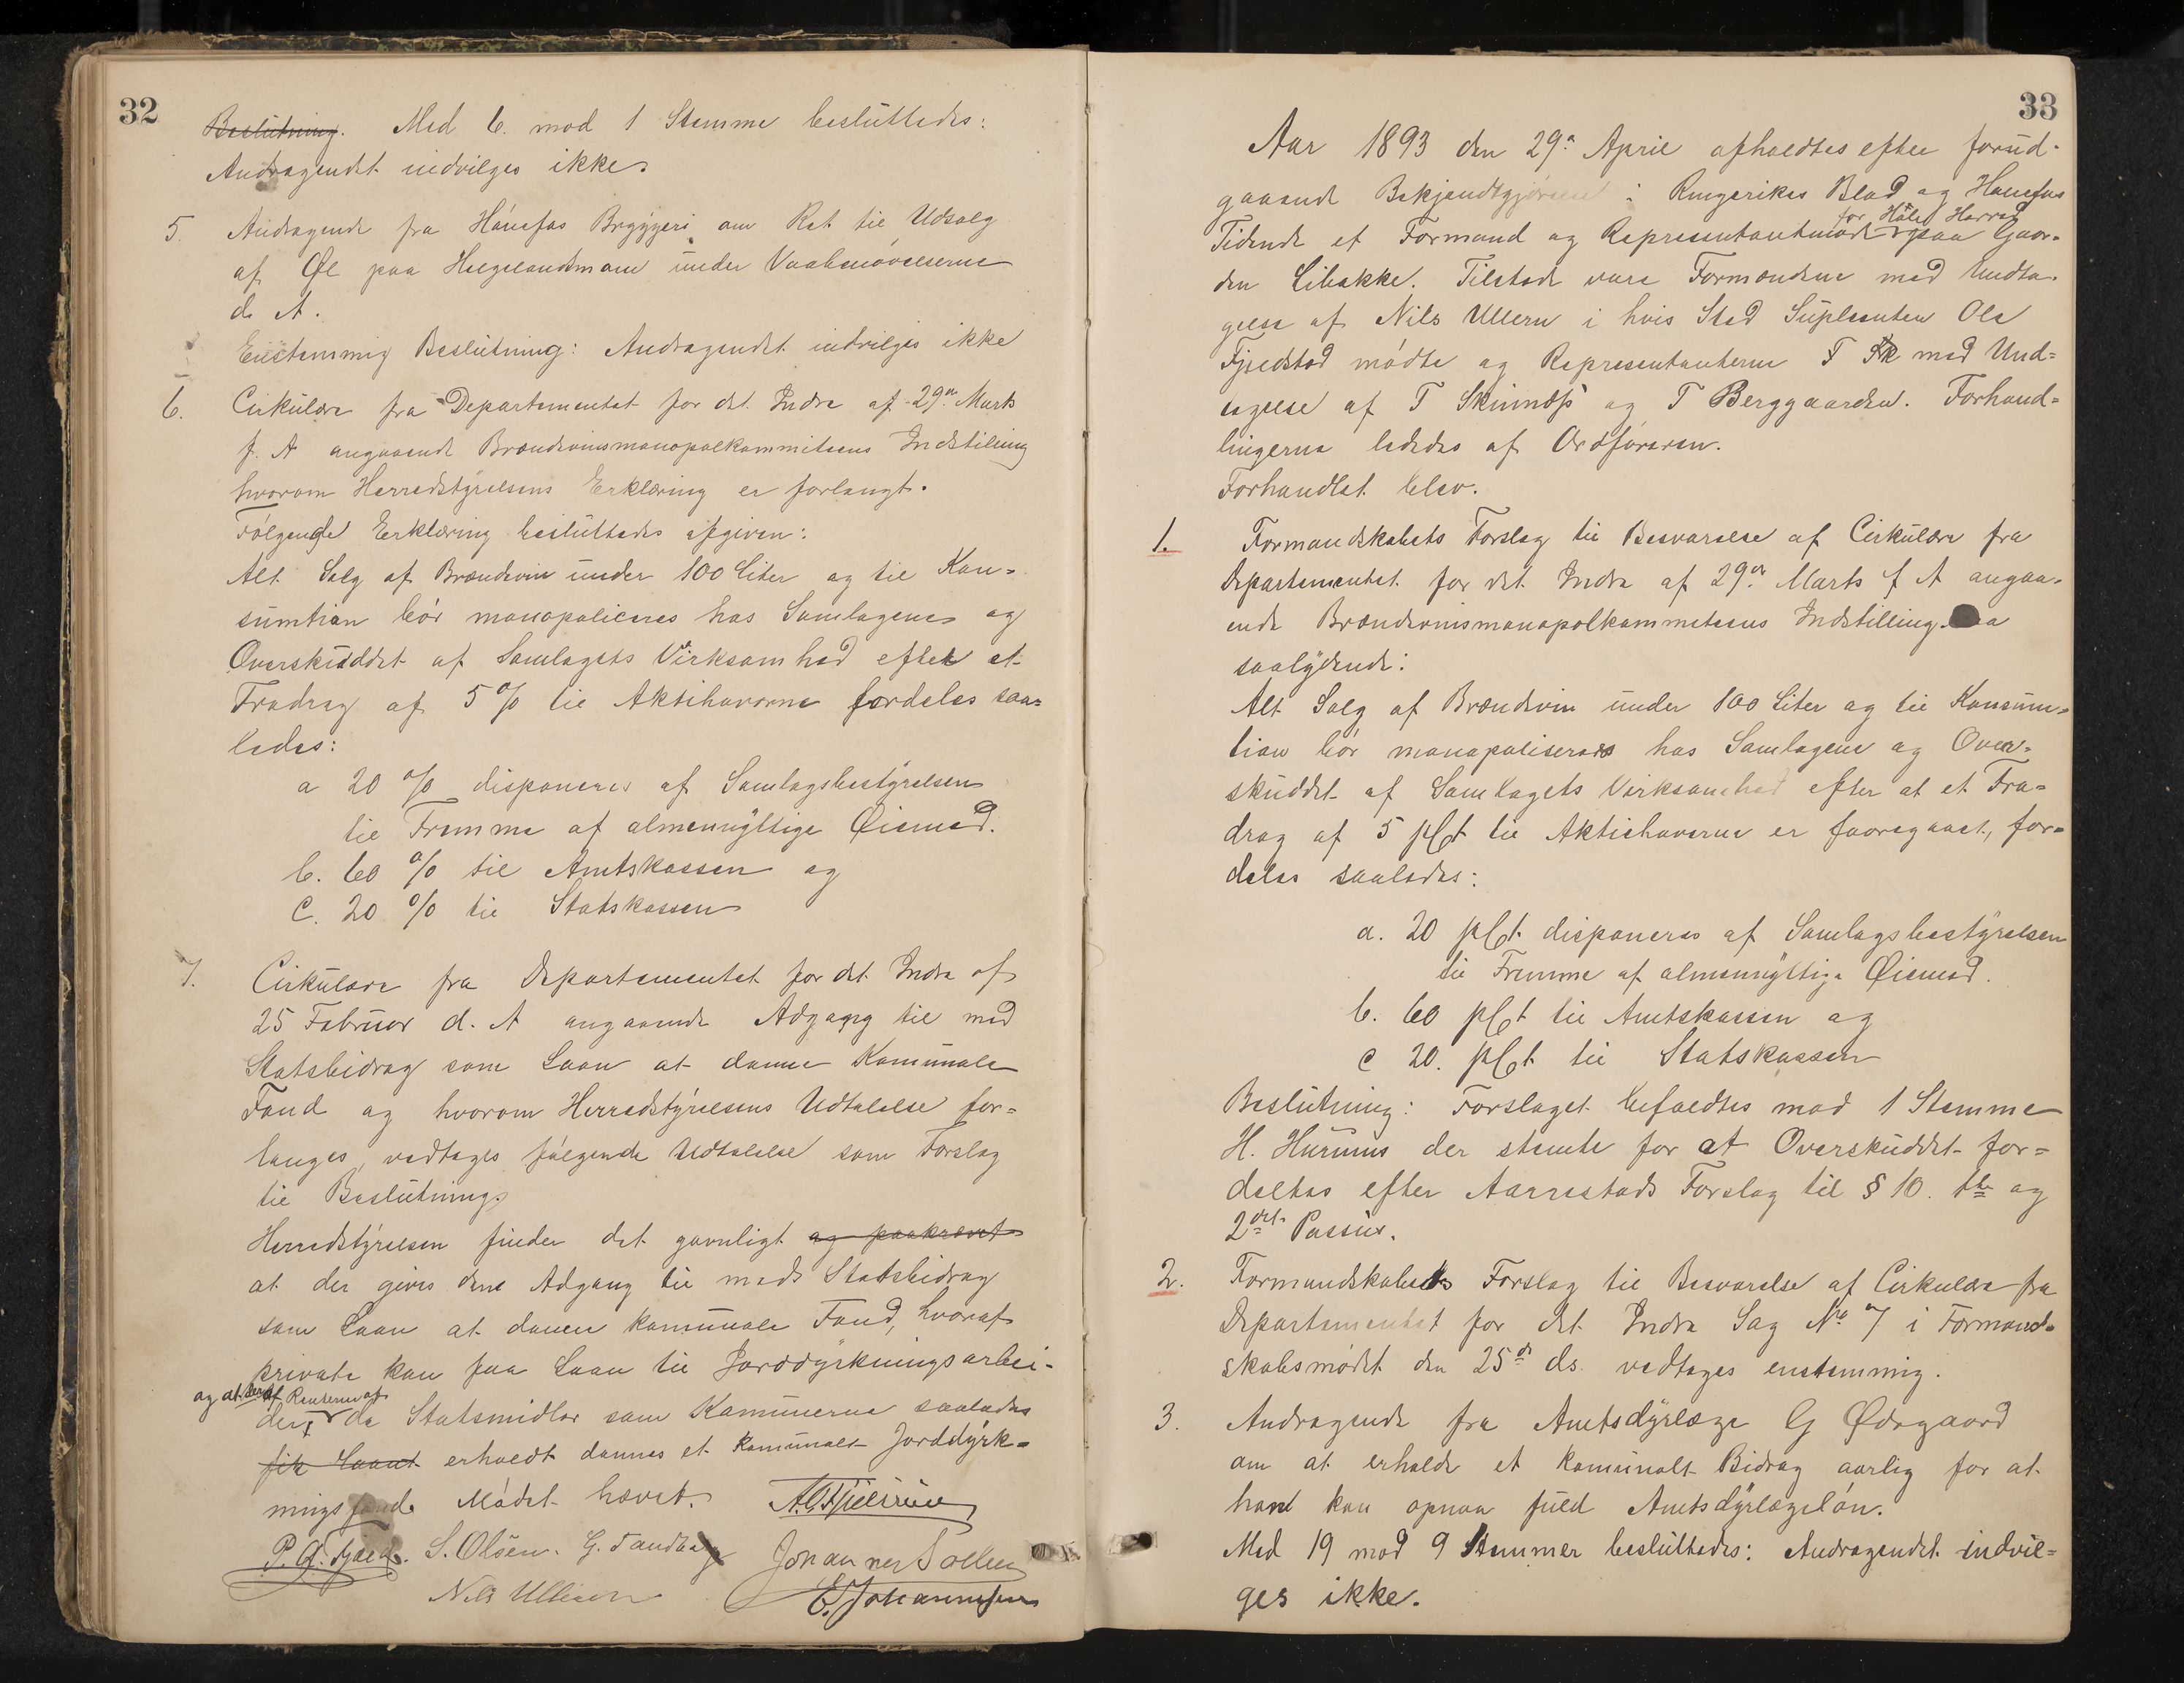 32
Beslutning. Med 6. mod 1 Stemme besluttedes:
Andragendet indvilges ikke.
5. Andragende fra Hønefos Bryggeri om Ret til Udsalg
af Øl paa Helgelandsmoen under Vaabenøvelserne
d. A.
Enstemmig Beslutning: Andragendet indvilges ikke
6. Cirkulære fra Departementet for det Indre af 29de Marts
f. A angaaende Brændevinsmonopolkommiteens Indstilling
hvorom Herredstyrelsens Erklæring er forlangt.
Følgende Erklæring besluttedes afgiven:
Alt Salg af Brændevin under 100 Liter og til Kon=
sumtion bør monopoliceres hos Samlagene og
Overskuddet af Samlagets Virksomhed efter et
Fradrag af 5 % til Aktihaverne fordeles saa=
ledes:
a 20 % disponeres af Samlagsbestyrelsen
til Fremme af almennyttige Øiemed.
b. 60 % til Amtskassen og
c. 20 % til Statskassen
7. Cirkulære fra Departementet for det Indre af
25 Februar d. A angaaende Adgang til med
Statsbidrag som Laan at danne Komunale
Fond og hvorom Herredstyrelsens Udtalelse for=
langes, vedtages følgende Udtalelse som Forslag
til Beslutning
Herredstyrelsen finder det gavnligt og paakrævet
at der gives den Adgang til med Statsbidrag
som Laan at danne komunale Fond, hvoraf
private kan faa Laan til Jorddyrkningsarbei-
og at der af Renterne af
der, de Statsmidler som Kommunerne saaledes
fik Laant erholdt dannes et komunalt Jorddyrk=
ningsfond. Mødet hævet.
P. G. Fjeld. S. Olsen. G. Tandberg Johannes Sollien
Nils Ullern E. Johannesen
33
Aar 1893 den 29de April afholdtes efter forud-
gaaende Bekjendtgjørelse i Ringerikes Blad og Hønefos
for Hole Herred
Tidende et Formand og Representantmøde paa Gaar-
den Libakke. Tilstede vare Formændene med Undta-
gelse af Nils Ullern i hvis Sted Supleanten Ole
Fjeldstad mødte og Representanterne med Und=
tagelse af T Skinnæss og T Berggaarden. Forhand=
lingerne lededes af Ordføreren.
Forhandlet blev.
1. Formandskabets Forslag til Besvarelse af Cirkulære fra
Departementet for det Indre af 29de Marts f A angaa-
ende Brændevinsmonopolkommiteens Indstilling
saalydende:
Alt Salg af Brændevin under 100 Liter og til Konsum=
tion bør monopoliseres hos Samlagene og Over-
skuddet af Samlagets Virksomhed efter at et Fra=
drag af 5 pCt til Aktiehaverne er foregaaet, for=
deles saaledes:
a. 20 pCt. disponeres af Samlagsbestyrelsen
til Fremme af almennyttige Øiemed.
b. 60 pCt til Amtskassen og
c 20. pCt til Statskassen
Beslutning: Forslaget bifaldtes mod 1 Stemme
H. Hurums der stemte for at Overskuddet for=
deltes efter Aarrestads Forslag til § 10. 1ste og
2det Passus.
2. Formandskabets Forslag til Besvarelse af Cirkulære fra
Departementet for det Indre Sag No 7 i Formand=
skabsmødet den 25de ds. vedtages enstemmig.
3. Andragende fra Amtsdyrlæge G Ødegaard
om at erholde et komunalt Bidrag aarlig for at
hand kan opnaa fuld Amtsdyrlægeløn.
Med 19 mod 9 Stemmer besluttedes: Andragendet indvil=
ges ikke.